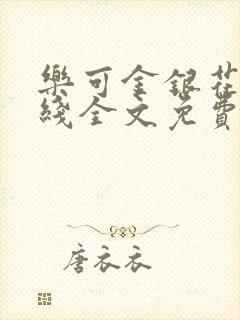 樂可金銀花
綫全文免費
唐衣衣